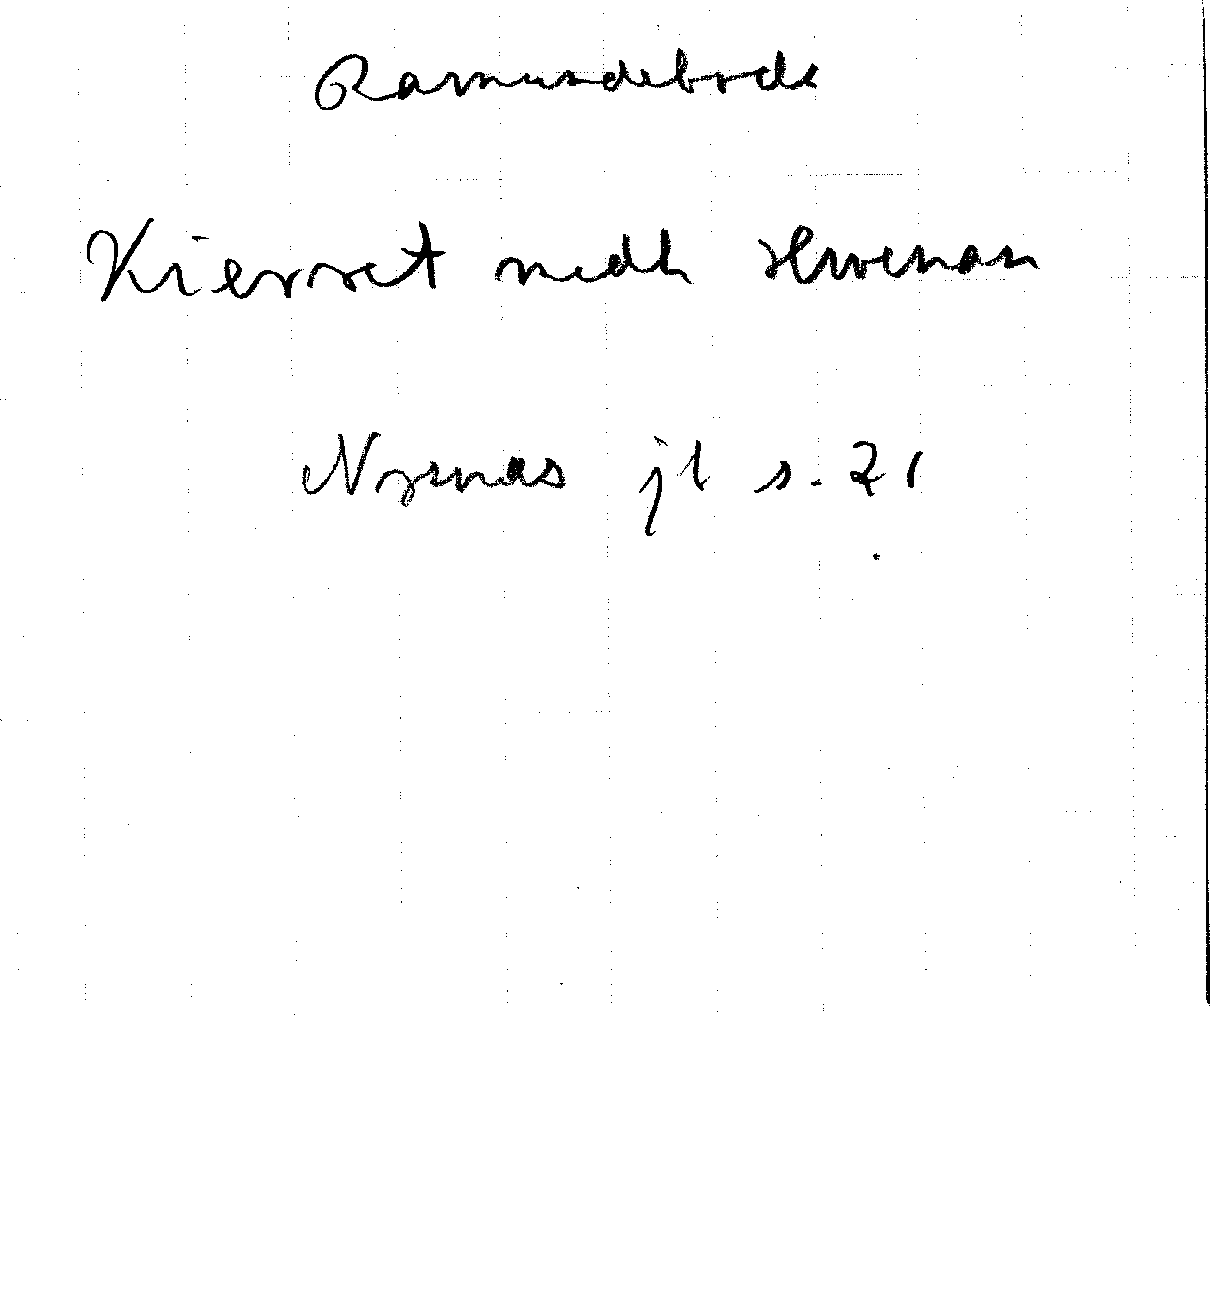 Ramundeboda
Kierret medh Hwenan
Nysnäs jb s. 21